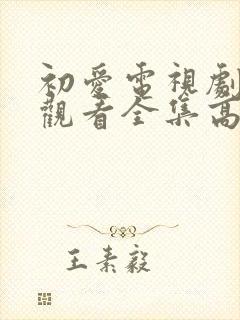 初愛電視劇
觀看全集高
王素毅